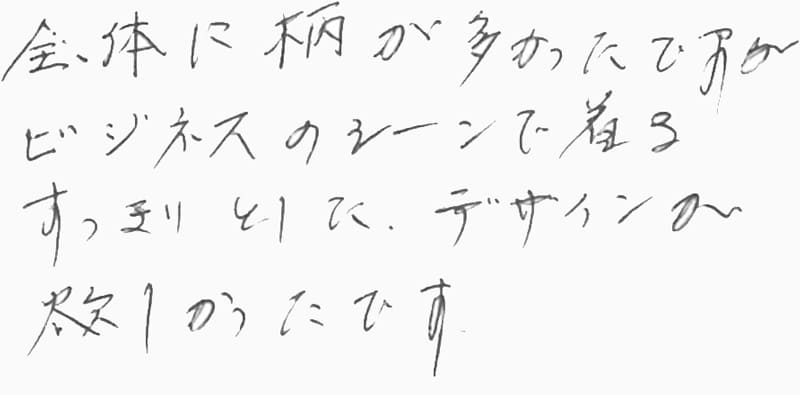 全体に柄が多かったですが
ビジネスのシーンで着る
すっきりとした.デザインが
欲しかったです.